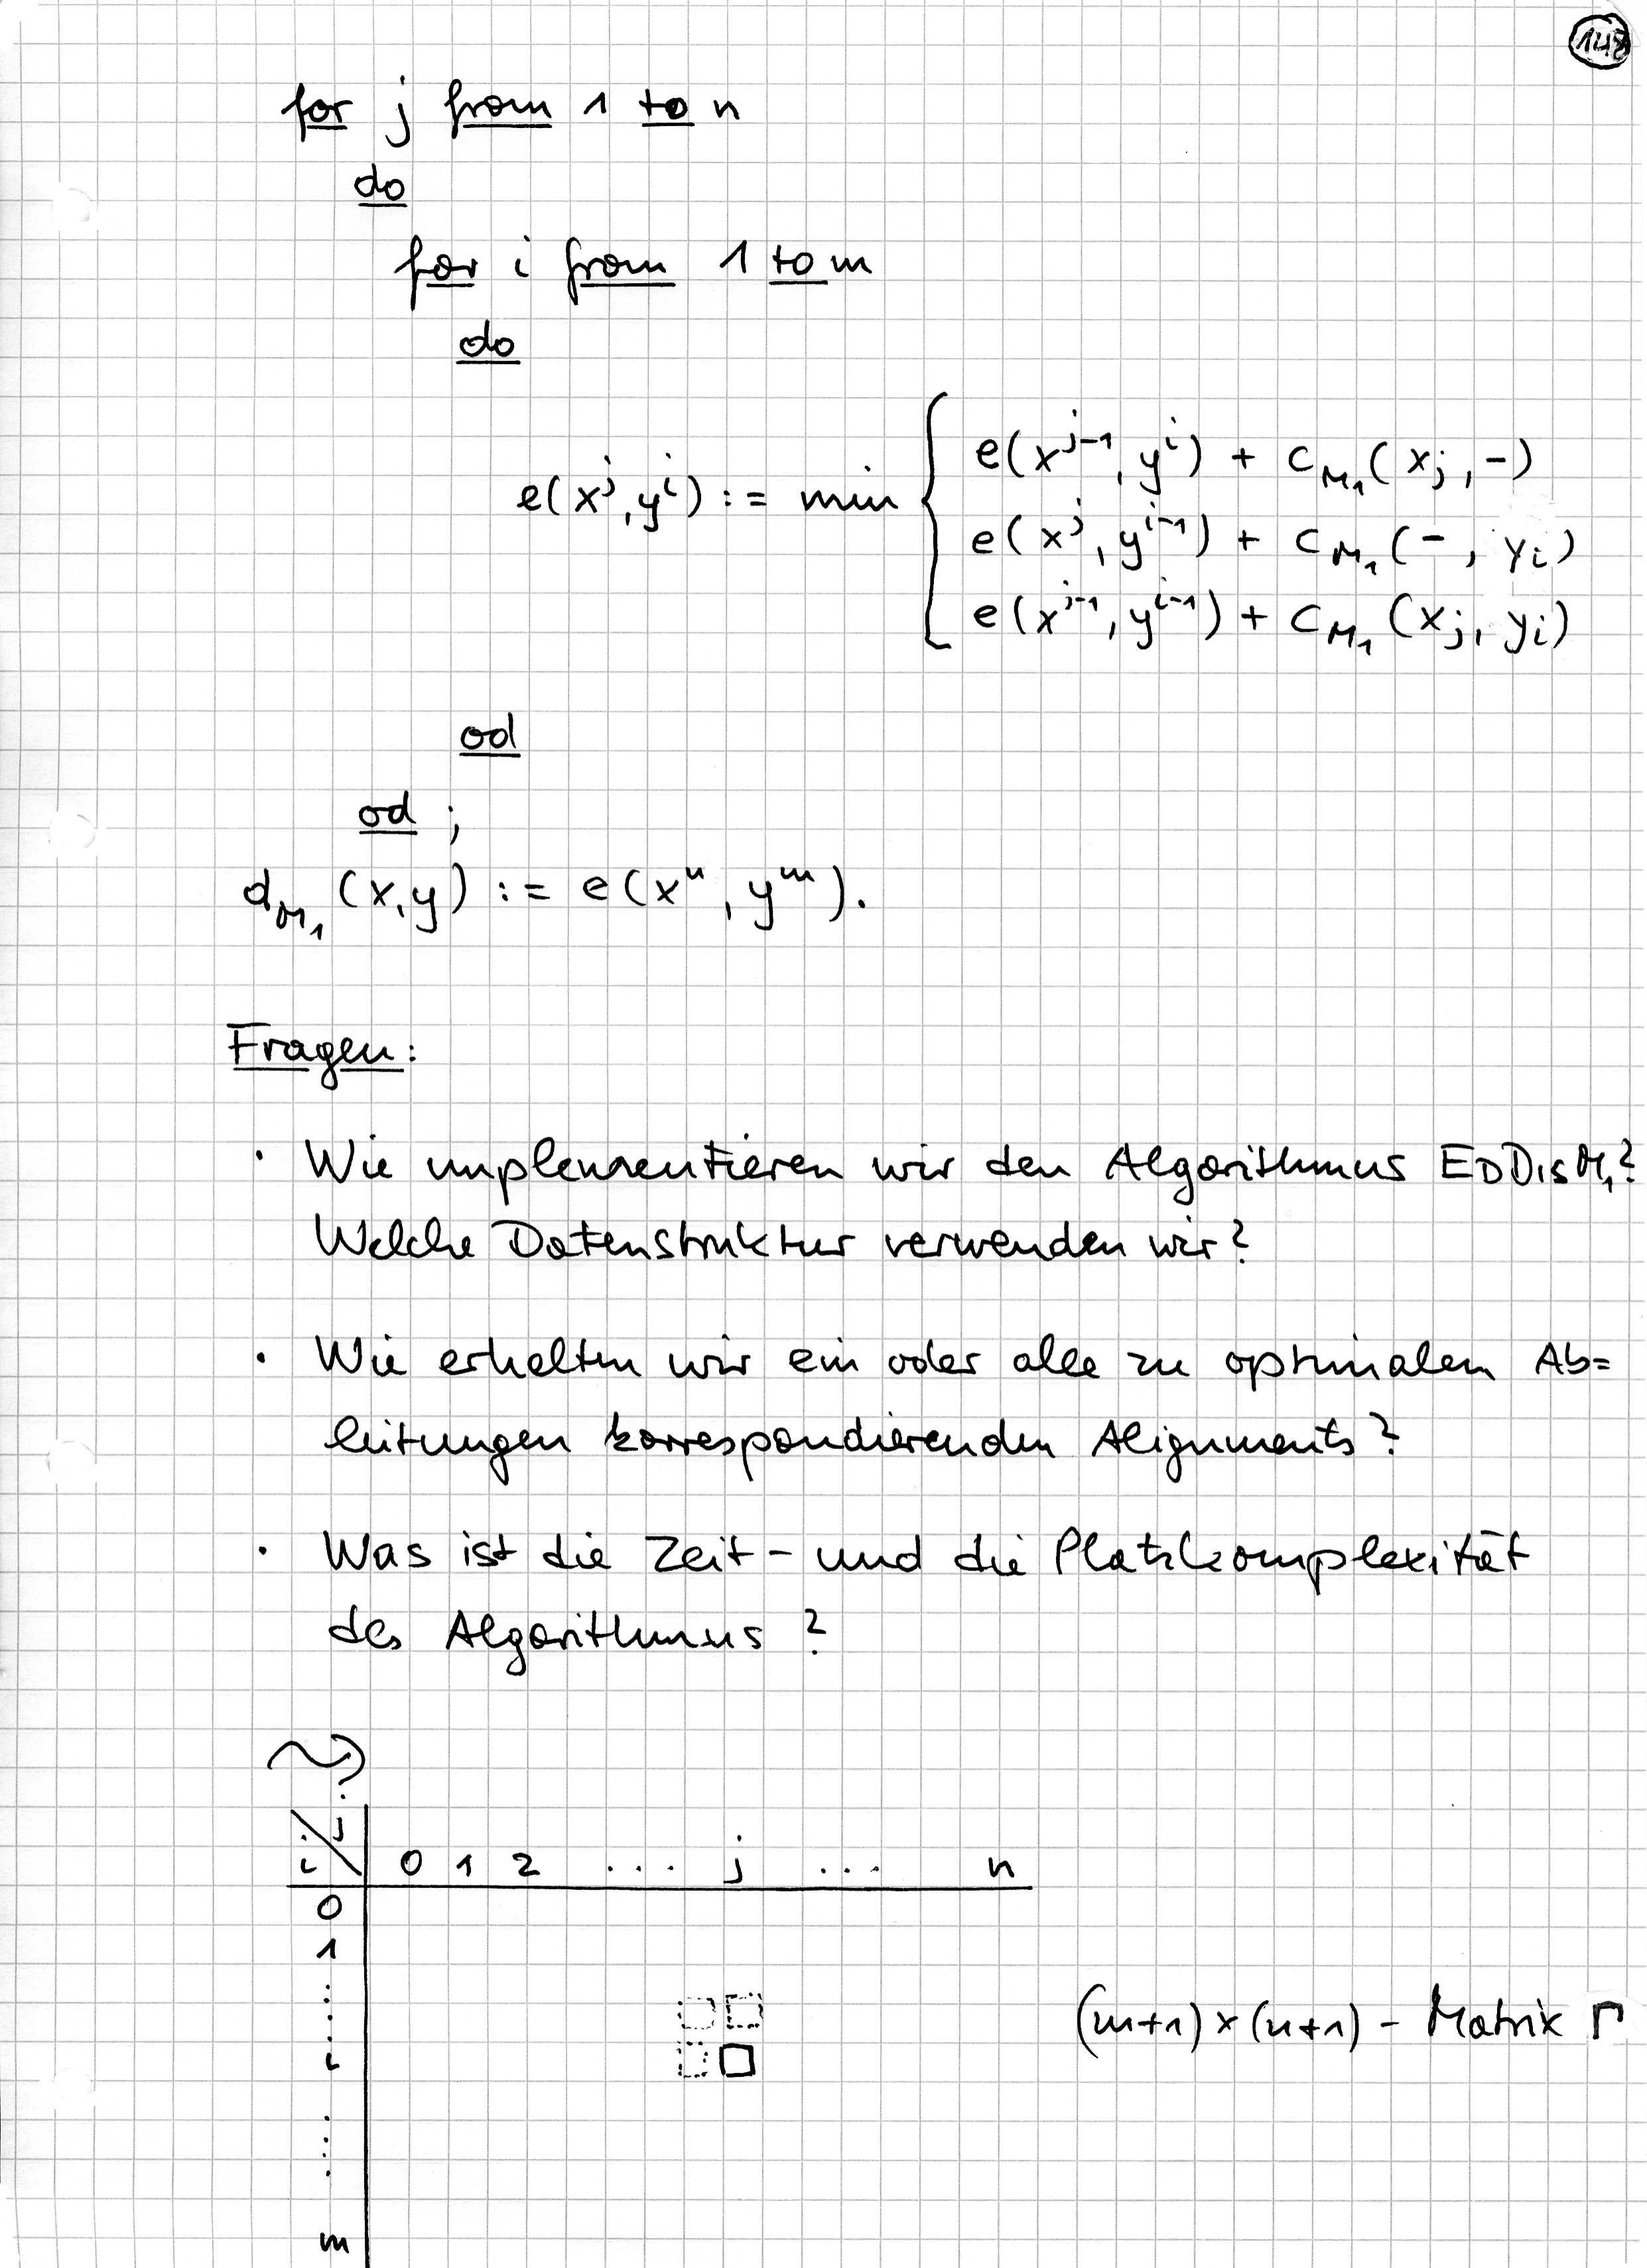 148
for j from 1 to n
do
for i from 1 to m
do
e(x^j, y^i) := min { e(x^{j-1}, y^i) + c_{M_1}(x_j, -)
e(x^j, y^{i-1}) + c_{M_1}(-, y_i)
e(x^{j-1}, y^{i-1}) + c_{M_1}(x_j, y_i)
od
od ;
d_{M_1}(x,y) := e(x^n, y^m).
Fragen:
· Wie implementieren wir den Algorithmus EDDISM_1?
Welche Datenstruktur verwenden wir?
· Wie erhalten wir ein oder alle zu optimalen Ab=
leitungen korrespondierenden Alignments?
· Was ist die Zeit- und die Platzkomplexität
des Algorithmus?
i\j 0 1 2 ... j ... n
0
1
⋮
i
⋮
m
(m+1)×(n+1)-Matrix Γ